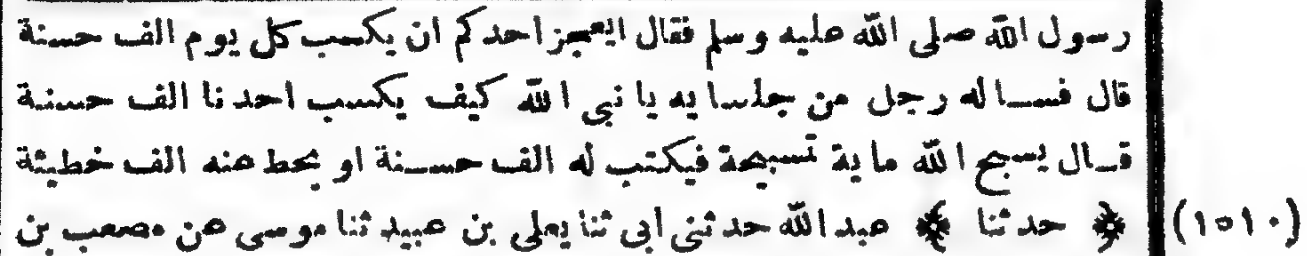 رسول الله صلى الله عليه وسلم فقال ايعجز احدكم ان يكسب كل يوم الف حسنة
قال فساله رجل من جلسايه يا نبى الله كيف يكسب احدنا الف حسنة
قال يسبح الله ماية تسبيحة فيكتب له الف حسنة او يحط عنه الف خطيئة
(١٥١٠) ﴿ حدثنا ﴾ عبد الله حدثنى ابى ثنا يعلى بن عبيد ثنا موسى عن مصعب بن